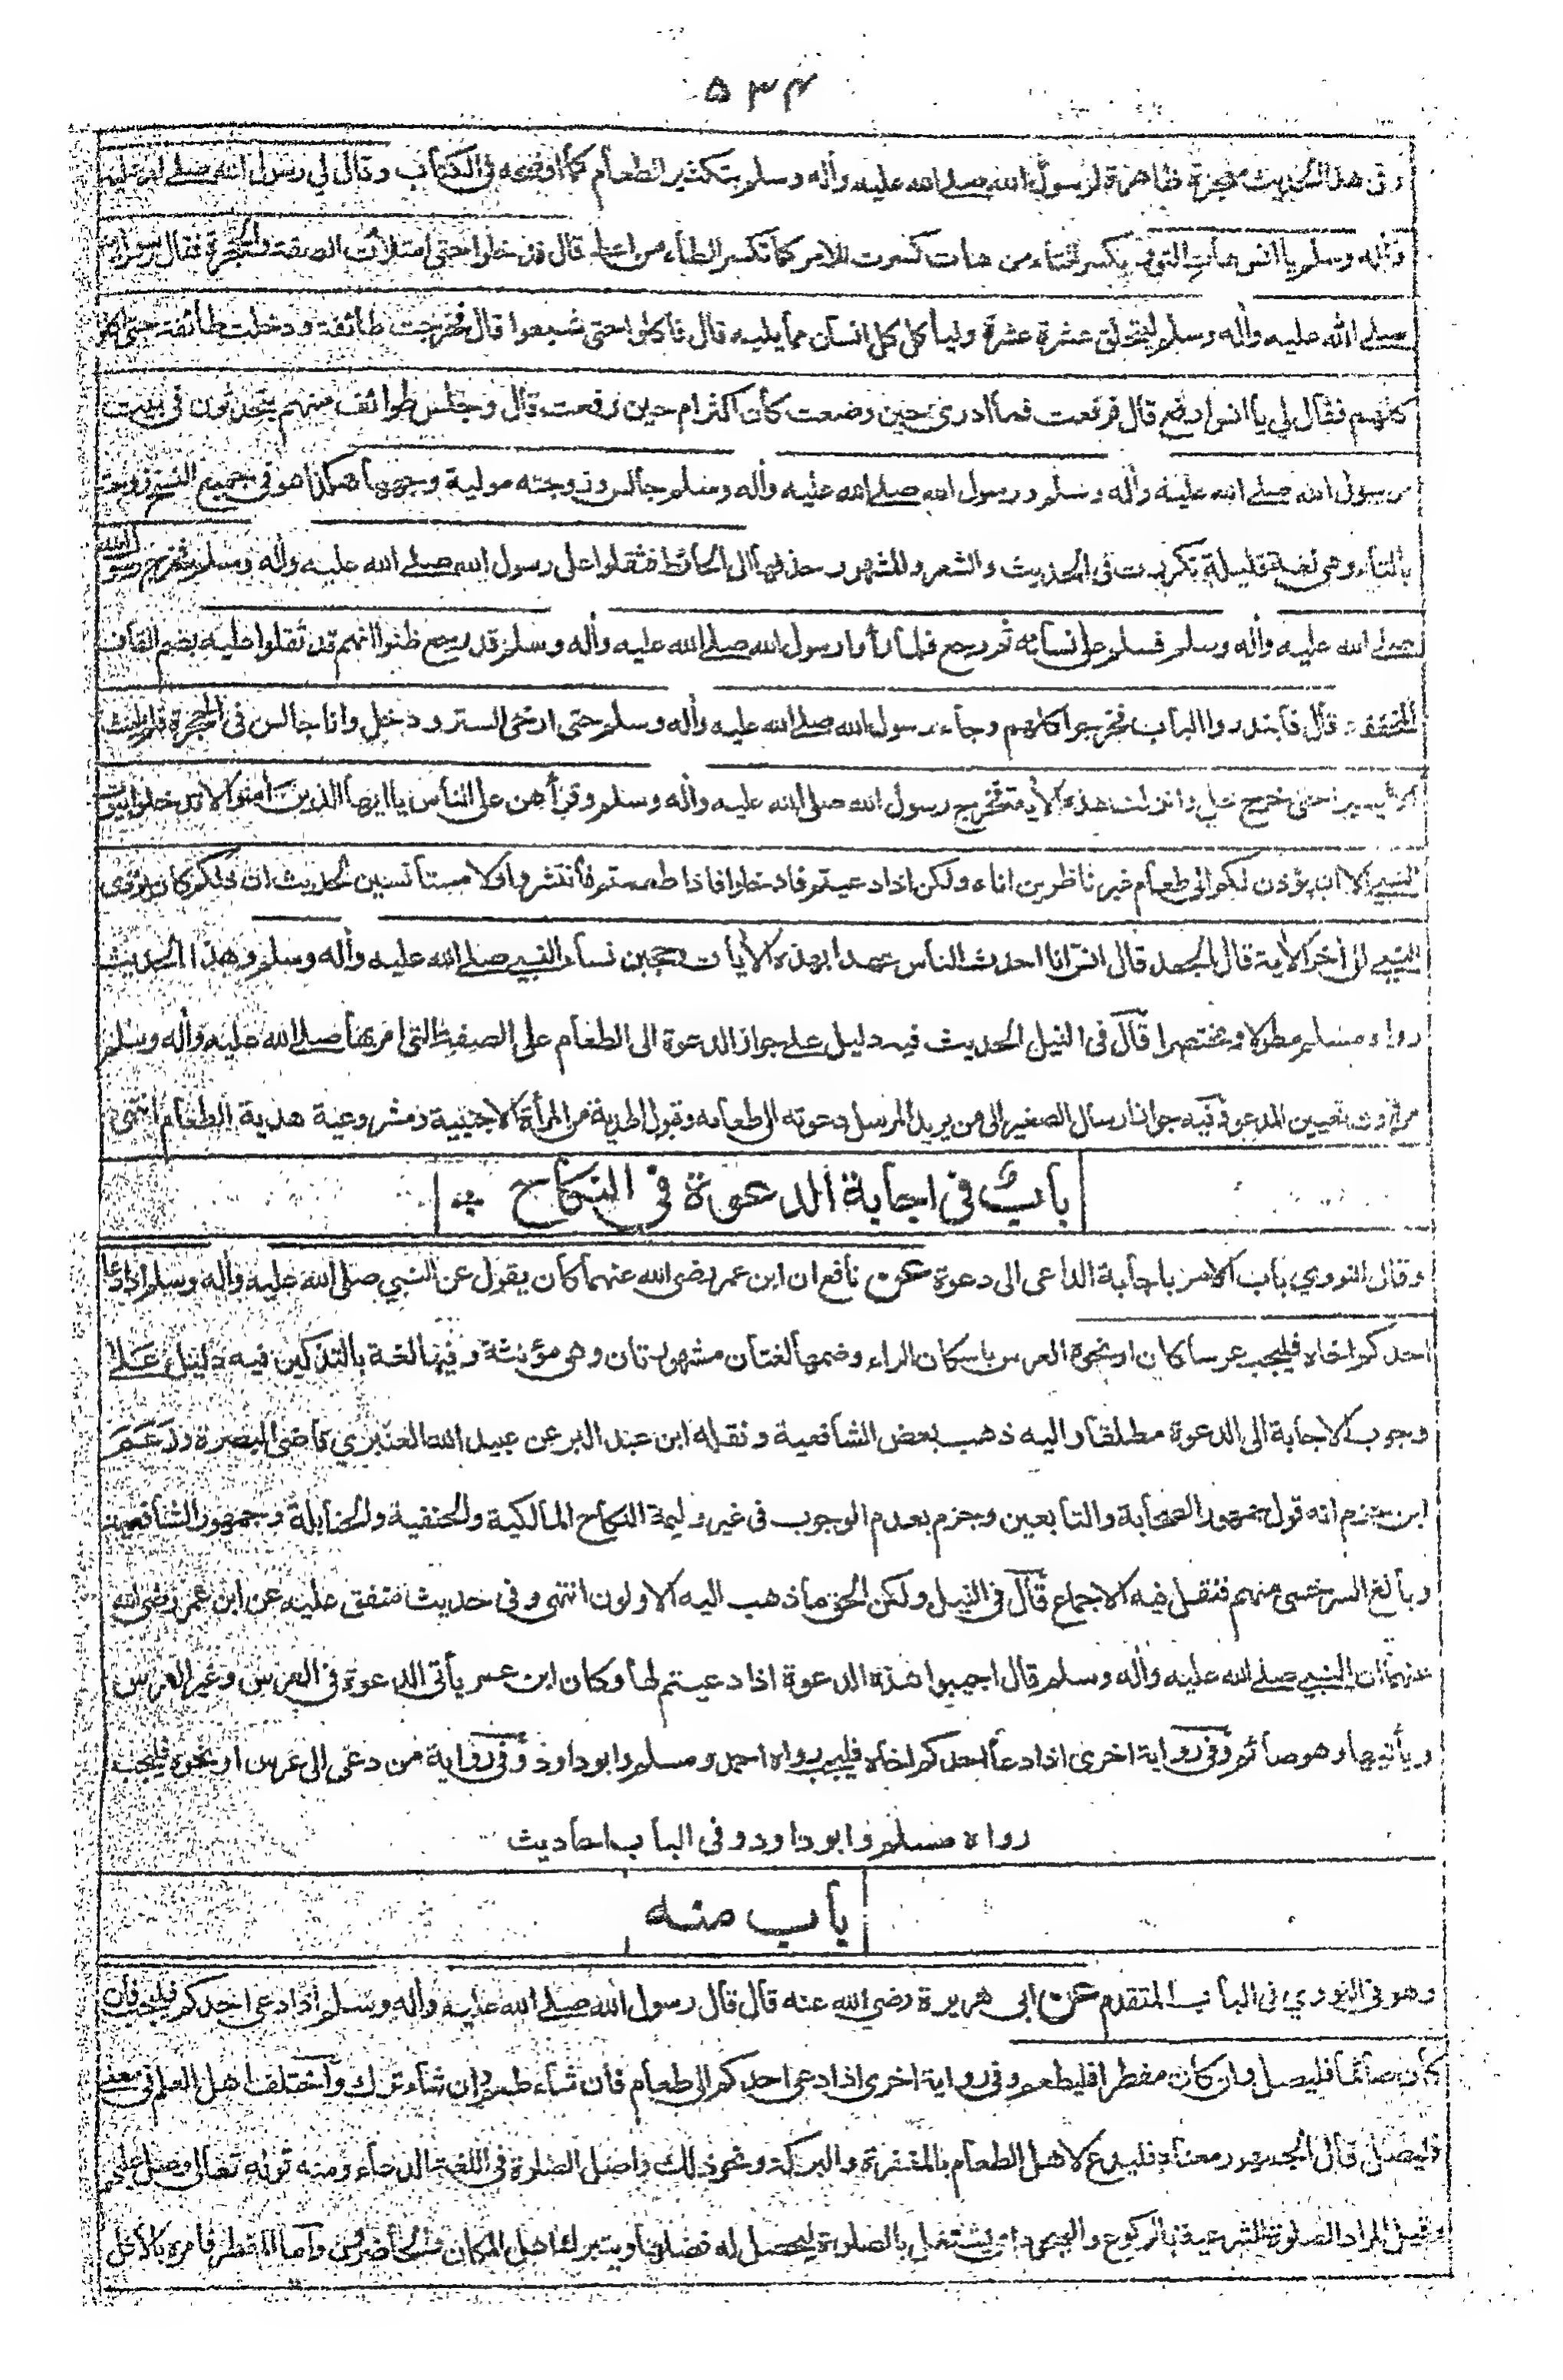 ۵۳۴
وفي هذا الحديث معجزة ظاهرة لرسول الله صلى الله عليه وأله وسلم بتكثير الطعام كما اوضحه فى الكتاب وقال لي رسول الله صلى الله عليه
وأله وسلم يا انس هات التور بكسر التاء من هات كسرت للامر كما تكسر الطاء من اعط قال فدخلوا حتى امتلأت الصفة والحجرة فقال رسول الله
صلى الله عليه وأله وسلم ليتحلق عشرة عشرة وليأكل كل انسان مما يليه قال فأكلوا حتى شبعوا قال فخرجت طائفة ودخلت طائفة حتى اكلوا
كلهم فقال لي يا انس ارفع قال فرفعت فما ادرى حين وضعت كان اكثر ام حين رفعت قال وجلس طوائف منهم يتحدثون فى بيت
رسول الله صلى الله عليه وأله وسلم ورسول الله صلى الله عليه وأله وسلم جالس وزوجته مولية وجهها هكذا هو فى جميع النسخ زوجته
بالتاء وهى لغة قليلة تكررت فى الحديث والشعر والمشهور حذفها الى الحائط فثقلوا على رسول الله صلى الله عليه وأله وسلم فخرج رسول الله
صلى الله عليه وأله وسلم فسلم على نسائه ثم رجع فلما رأوا رسول الله صلى الله عليه وأله وسلم قد رجع ظنوا انهم قد ثقلوا عليه بضم القاف
المخففة قال فابتدروا الباب فخرجوا كلهم وجاء رسول الله صلى الله عليه وأله وسلم حتى ارخى الستر ودخل وانا جالس فى الحجرة فلم يلبث
الا يسيرا حتى خرج علي وانزلت هذه الأية فخرج رسول الله صلى الله عليه وأله وسلم وقرأهن على الناس يا ايها الذين أمنوا لا تدخلوا بيوت
النبي الا ان يؤذن لكم الى طعام غير ناظرين اناه ولكن اذا دعيتم فادخلوا فاذا طعمتم فانتشروا ولا مستأنسين لحديث ان ذلكم كان يؤذى
النبي الى أخر الأية قال الجعد قال انس انا احدث الناس عهدا بهذه الأيات وحجبن نساء النبي صلى الله عليه وأله وسلم وهذا الحديث
رواه مسلم مطولا ومختصرا قال فى النيل الحديث فيه دليل على جواز الدعوة الى الطعام على الصفة التى امر بها صلى الله عليه وأله وسلم
من دون تعيين المدعو فيه جواز ارسال الصغير الى من يريد المرسل دعوته الى طعامه وقبول الهدية من المرأة الاجنبية ومشروعية هدية الطعام انتهى
باب فى اجابة الدعوة فى النكاح
وقال النووي باب الامر باجابة الداعى الى دعوة عن نافع ان ابن عمر رضى الله عنهما كان يقول عن النبي صلى الله عليه وأله وسلم اذا دعا
احدكم اخاه فليجب عرسا كان او نحوه العرس باسكان الراء وضمها لغتان مشهورتان وهى مؤنثة وفيها لغة بالتذكير فيه دليل على
وجوب الاجابة الى الدعوة مطلقا واليه ذهب بعض الشافعية ونقله ابن عبد البر عن عبيد الله العنبري قاضى البصرة وزعم
ابن حزم انه قول جمهور الصحابة والتابعين وجزم بعدم الوجوب فى غير وليمة النكاح المالكية والحنفية والحنابلة وجمهور الشافعية
وبالغ السرخسى منهم فنقل فيه الاجماع قال فى النيل ولكن الحق ما ذهب اليه الاولون انتهى وفى حديث متفق عليه عن ابن عمر رضى الله
عنهما ان النبي صلى الله عليه وأله وسلم قال اجيبوا هذه الدعوة اذا دعيتم لها وكان ابن عمر يأتى الدعوة فى العرس وغير العرس
ويأتيها وهو صائم وفى رواية اخرى اذا دعا احدكم اخاه فليجب رواه احمد ومسلم وابو داود وفى رواية من دعى الى عرس او نحوه فليجب
رواه مسلم وابو داود وفى الباب احاديث
باب منه
وهو فى النووي فى الباب المتقدم عن ابى هريرة رضي الله عنه قال قال رسول الله صلى الله عليه وأله وسلم اذا دعى احدكم فليجب فان
كان صائما فليصل وان كان مفطرا فليطعم وفى رواية اخرى اذا دعى احدكم الى طعام فان شاء طعم وان شاء ترك واختلف اهل العلم فى معنى
فليصل قال الجمهور معناه فليدع لاهل الطعام بالمغفرة والبركة ونحو ذلك واصل الصلوة فى اللغة الدعاء ومنه قوله تعالى وصل عليهم
وقيل المراد الصلوة الشرعية بالركوع والسجود اى يشتغل بالصلوة ليحصل له فضلها ويتبرك اهل المكان والحاضرون واما المفطر فامره بالأكل